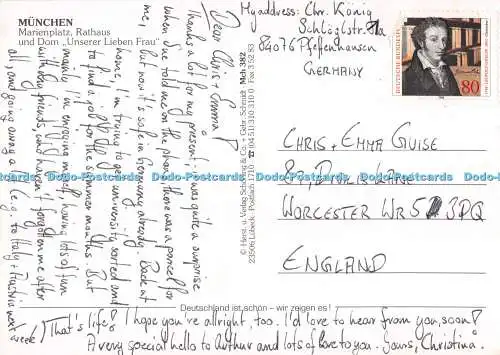 MÜNCHEN
Marienplatz, Rathaus
und Dom „Unserer Lieben Frau“
My address: Chr. König
Schloßlstr. 1a
84076 Pfeffenhausen
GERMANY
DEUTSCHE BUNDESPOST
80
Dear Chris + Emma!
Thanks a lot for my present; it was quite a surprise
when Sue told me on the phone, there was a parcel for
me, but now it's safe in Germany already. Back at
home, I'm trying to get university sorted and
to find a job for the summer months. But
mainly I'm enjoying myself having lots of fun
with my friends, who haven't forgotten me after
all, and going away a lot (e.g. to Italy + Austria next
week)! That's life! I hope you're allright, too. I'd love to hear from you, soon!
A very special hello to Arthur and lots of love to you. Yours, Christina.
© Horst u. Verlag Schöning & Co. + Gebr. Schmidt · Mch 382
23506 Lübeck · Postfach 1710 · ☎ 04 51/3 10 31 0 · Fax 3 52 83
CHRIS + EMMA GUISE
WORCESTER WR5 3PQ
ENGLAND
Deutschland ist schön – wir zeigen es!
Dodo-Postcards
i-Postcards.com